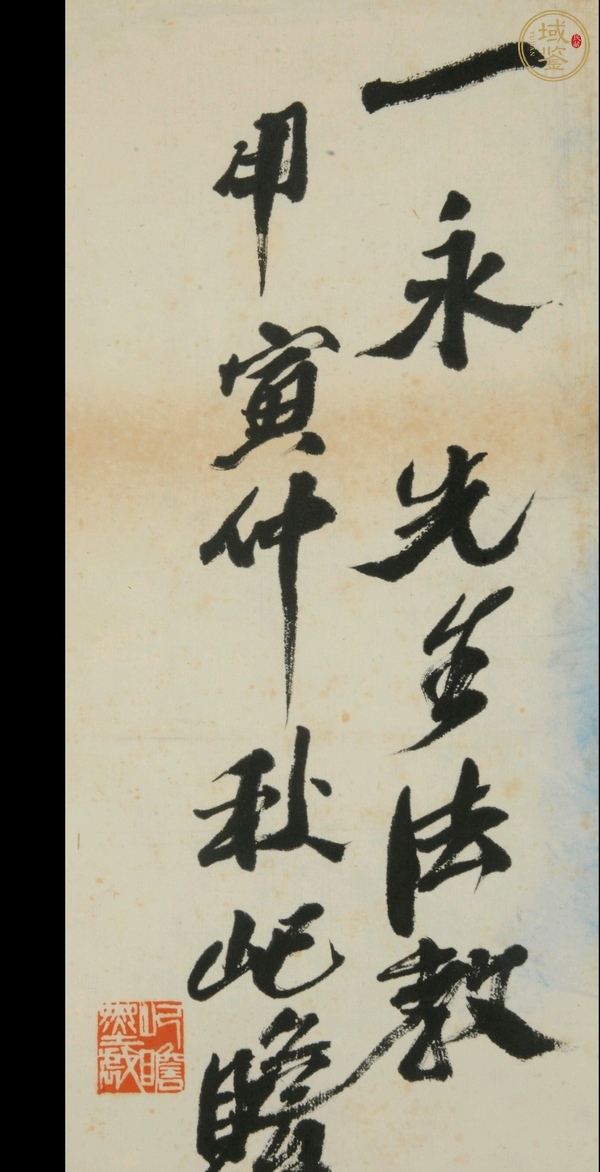 一永先生法教
甲寅仲秋屺瞻
屺瞻
墨戲
域鉴